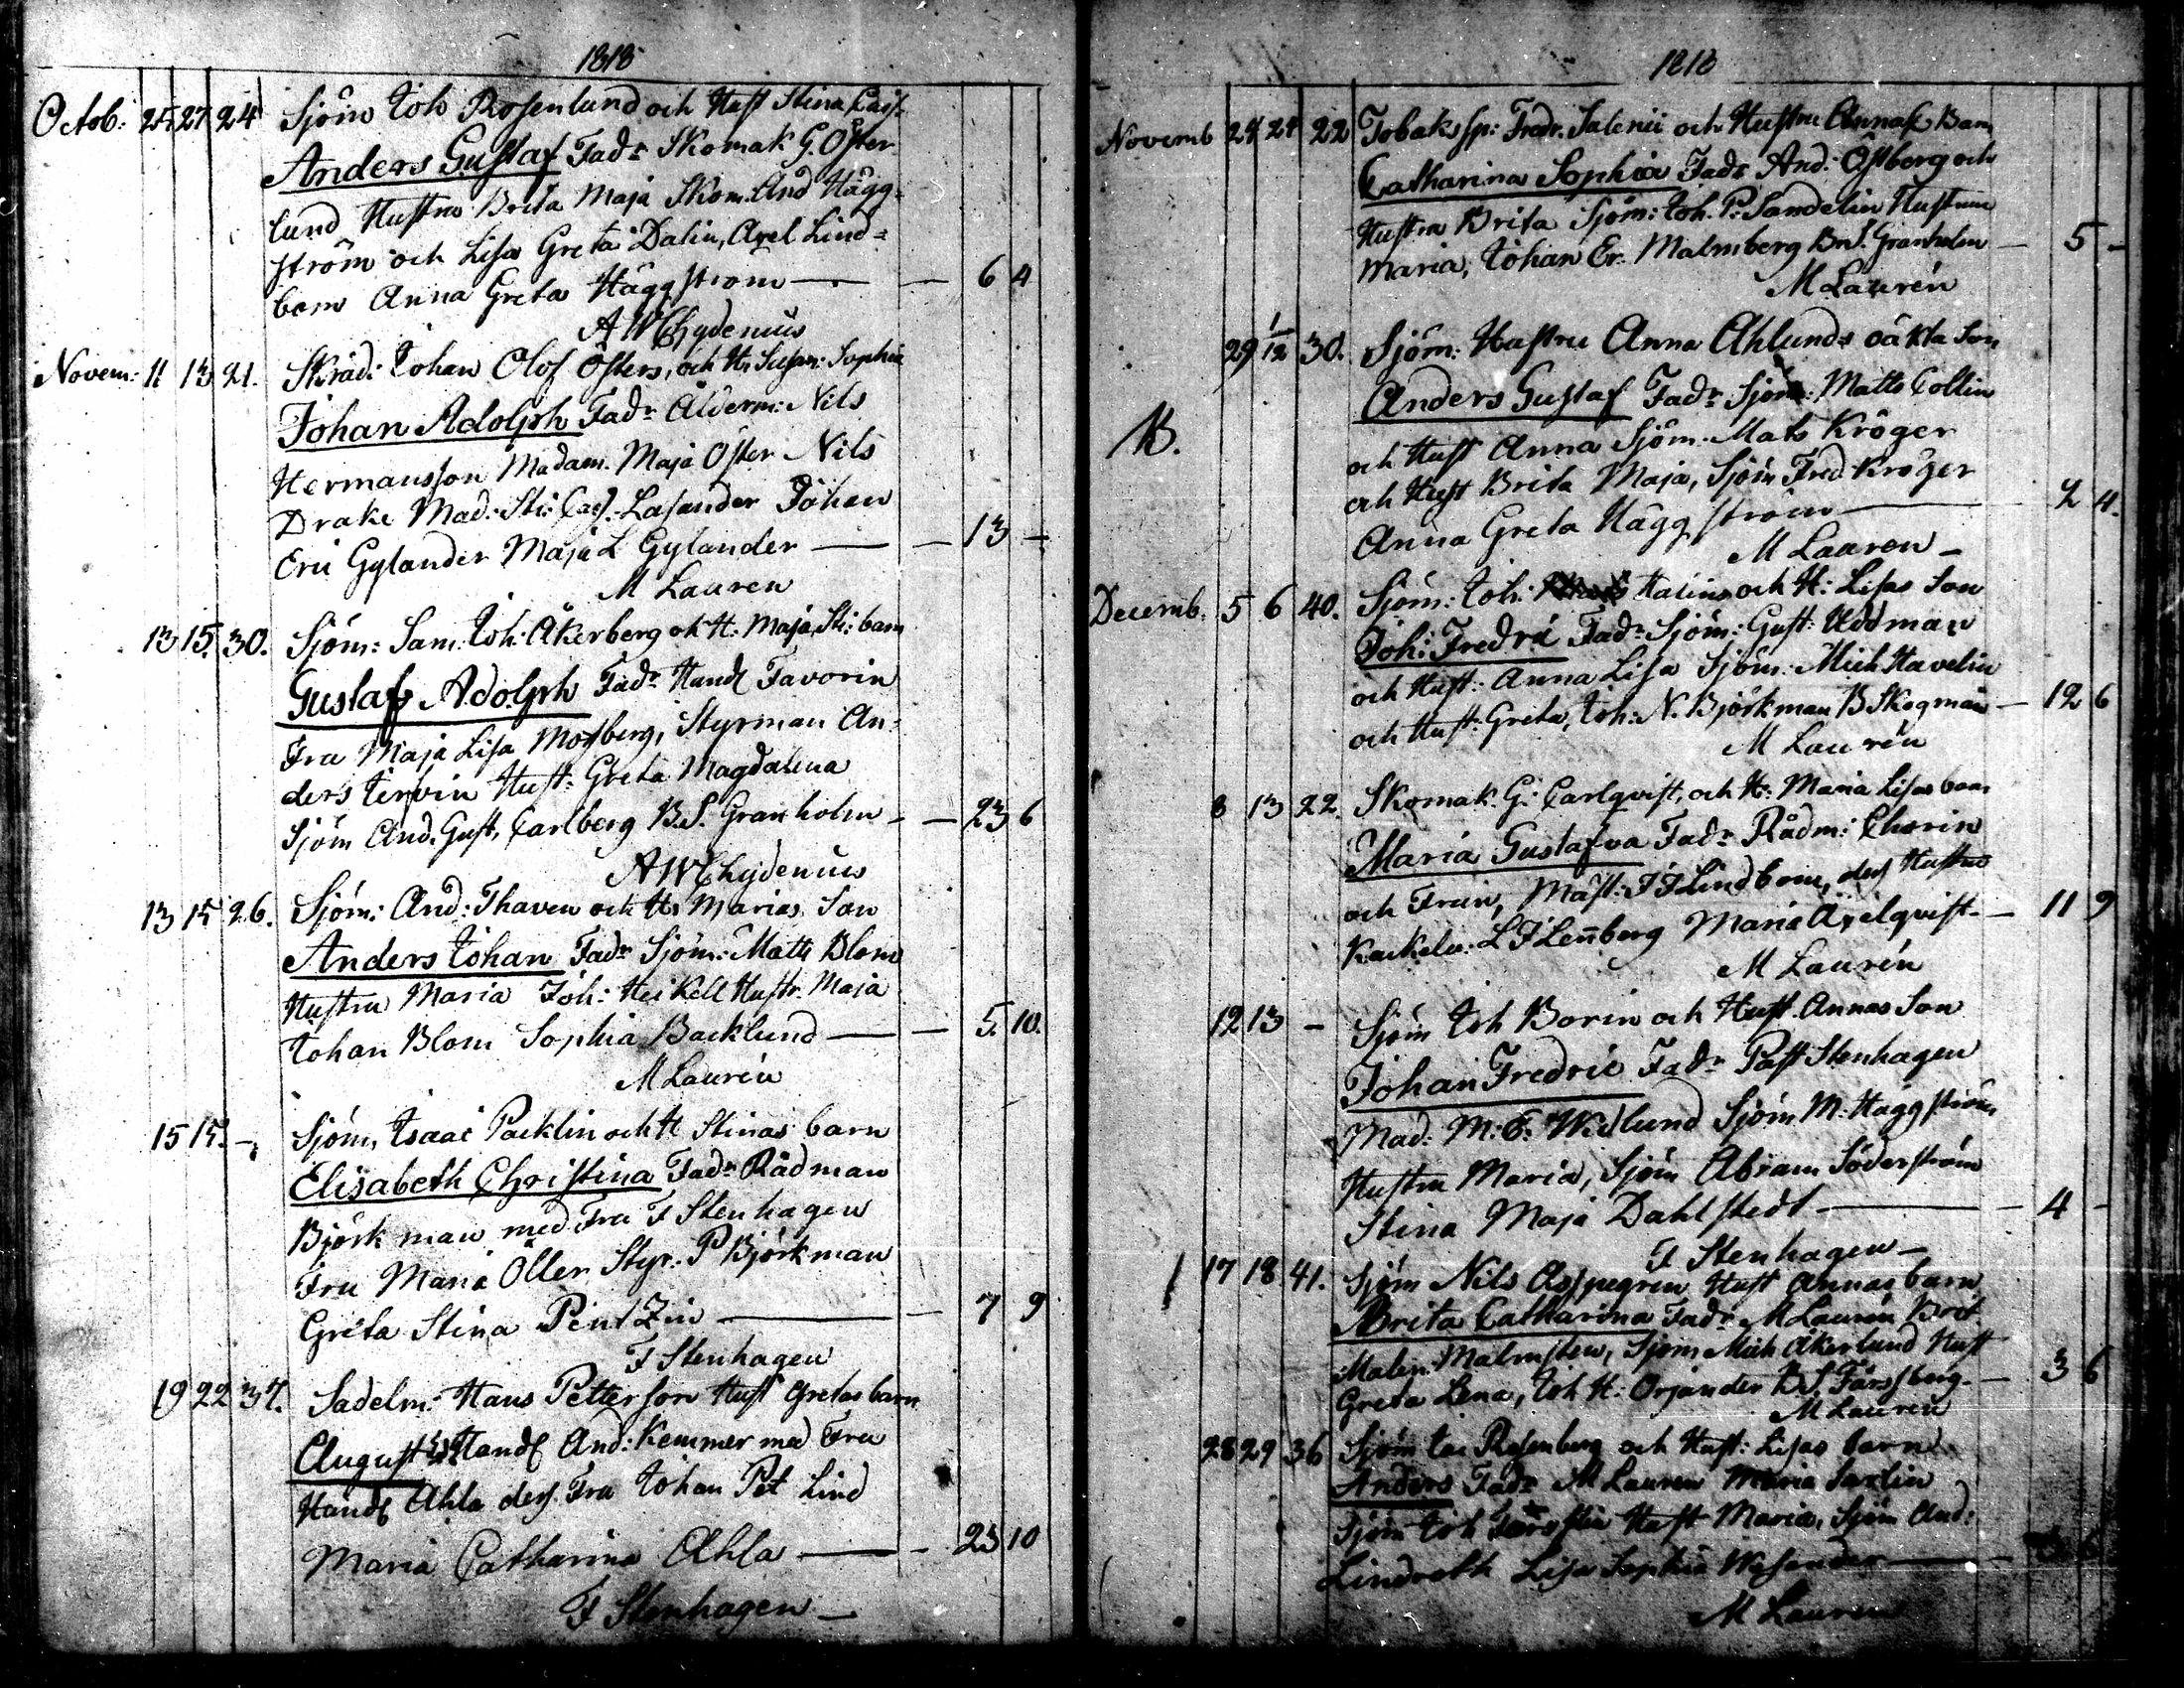 1818
Octob: 25 27 24 Sjöm Joh Rosenlund och Hust Stina Cais.
Anders Gustaf Fadr Skomak G. Öster-
lund Hustru Brita Maja Skom. And Hägg-
ström och Lisa Greta Dalin, Axel Lind-
bom Anna Greta Häggström — — 6 4
A W Chydenius
Novem: 11 13 21. Skräd: Johan Olof Östers, och H. Susan: Sophia
Johan Adolph Fadr Ålderm: Nils
Hermansson Madam. Maja Öster Nils
Drake Mad: Sti: Cas. Lasander Johan
Eric Gylander Maja L Gylander — — 13 —
M Lauren
13 15. 30. Sjöm: Sam. Joh: Åkerberg och H: Maja Sti: barn
Gustaf Adolph Fadr Handl Favorin
Fru Maja Lisa Mosberg, Styrman An-
ders Hust: Greta Magdalena
Sjöm And. Gust. Carlberg B.S. Granholm — — 23 6
A W Chydenius
13 15 26. Sjöm: And: Thaven och H: Marias Son
Anders Johan Fadr Sjöm: Matts Blom
Hustru Maria Joh: Heikell Hustr. Maja
Johan Blom Sophia Backlund — — 5. 10.
M Laurén
15 15. —. Sjöm, Isaac Packlin och H Stinas barn
Elisabeth Christina Fadr Rådman
Björkman med Fru F Stenhagen
Fru Maria Öller Styr: P Björkman
Greta Stina Pentzin — — 7 9
F Stenhagen
19 22 34. Sadelm: Hans Petterson Hust Gretas barn
August Handl And: Kemmer med Fru
Handl Ahla dess Fru Johan Pet Lind
Maria Catharina Ahla — — 23 10
F Stenhagen —
1818
Novemb 24 24 22 Tobakssp: Fredr. Saleni och Hustru Annas Barn
Catharina Sophia Fadr And: Östberg och
Hustru Brita Sjöm: Joh. P: Sandelin Hustru
Maria, Johan Er. Malmberg B.S. Granholm — 5 —
M Laurén
29 1/12 30. Sjöm: Hustru Anna Ahlunds oäkta Son
Anders Gustaf Fadr Sjöm: Matts Collin
B. och Hust Anna Sjöm. Mats Kröger
och Hust Brita Maja, Sjöm Fred Kröger
Anna Greta Häggström — 2 4.
M Lauren —
Decemb. 5 6 40. Sjöm: Joh: Halins och H: Lisas Son
Joh: Fredric Fadr Sjöm: Gust: Uddman
och Hust: Anna Lisa Sjöm: Mich Havelin
och Hust: Greta, Joh: N. Björkman B Skogman — 12 6
M Laurén
8 13 22 Skomak. G: Carlqvist, och H: Maria Lisas barn
Maria Gustafva Fadr Rådm: Chorin
och Fruin, Mäst: F F Lindbom, dess Hustru
Kackelu: L F Lenberg Maria Axelqvist — 11 9
M Laurén
12 13 — Sjöm Joh Borin och Hust. Annas Son
Johan Fredric Fadr Past Stenhagen
Mad: M: C: Widlund Sjöm M: Häggström
Hustru Maria, Sjöm Abram Söderström
Stina Maja Dahlstedt — — 4 —
F Stenhagen —
17 18 41. Sjöm Nils Asspegren Hust Annas barn
Brita Catharina Fadr M Laurén Brit.
Malen: Malmsten, Sjöm Mich Åkerlund Hust
Greta Lena, Joh H: Orjander B.S. Forssberg — 3 6
M Laurén
28 29 36 Sjöm Rosenberg och Hust: Lisas barn
Anders Fadr M Lauren Maria Saxlin
Sjöm Joh Hust Maria, Sjöm And:
Lindroth Lisa Sophia Wasender —
M Lauren